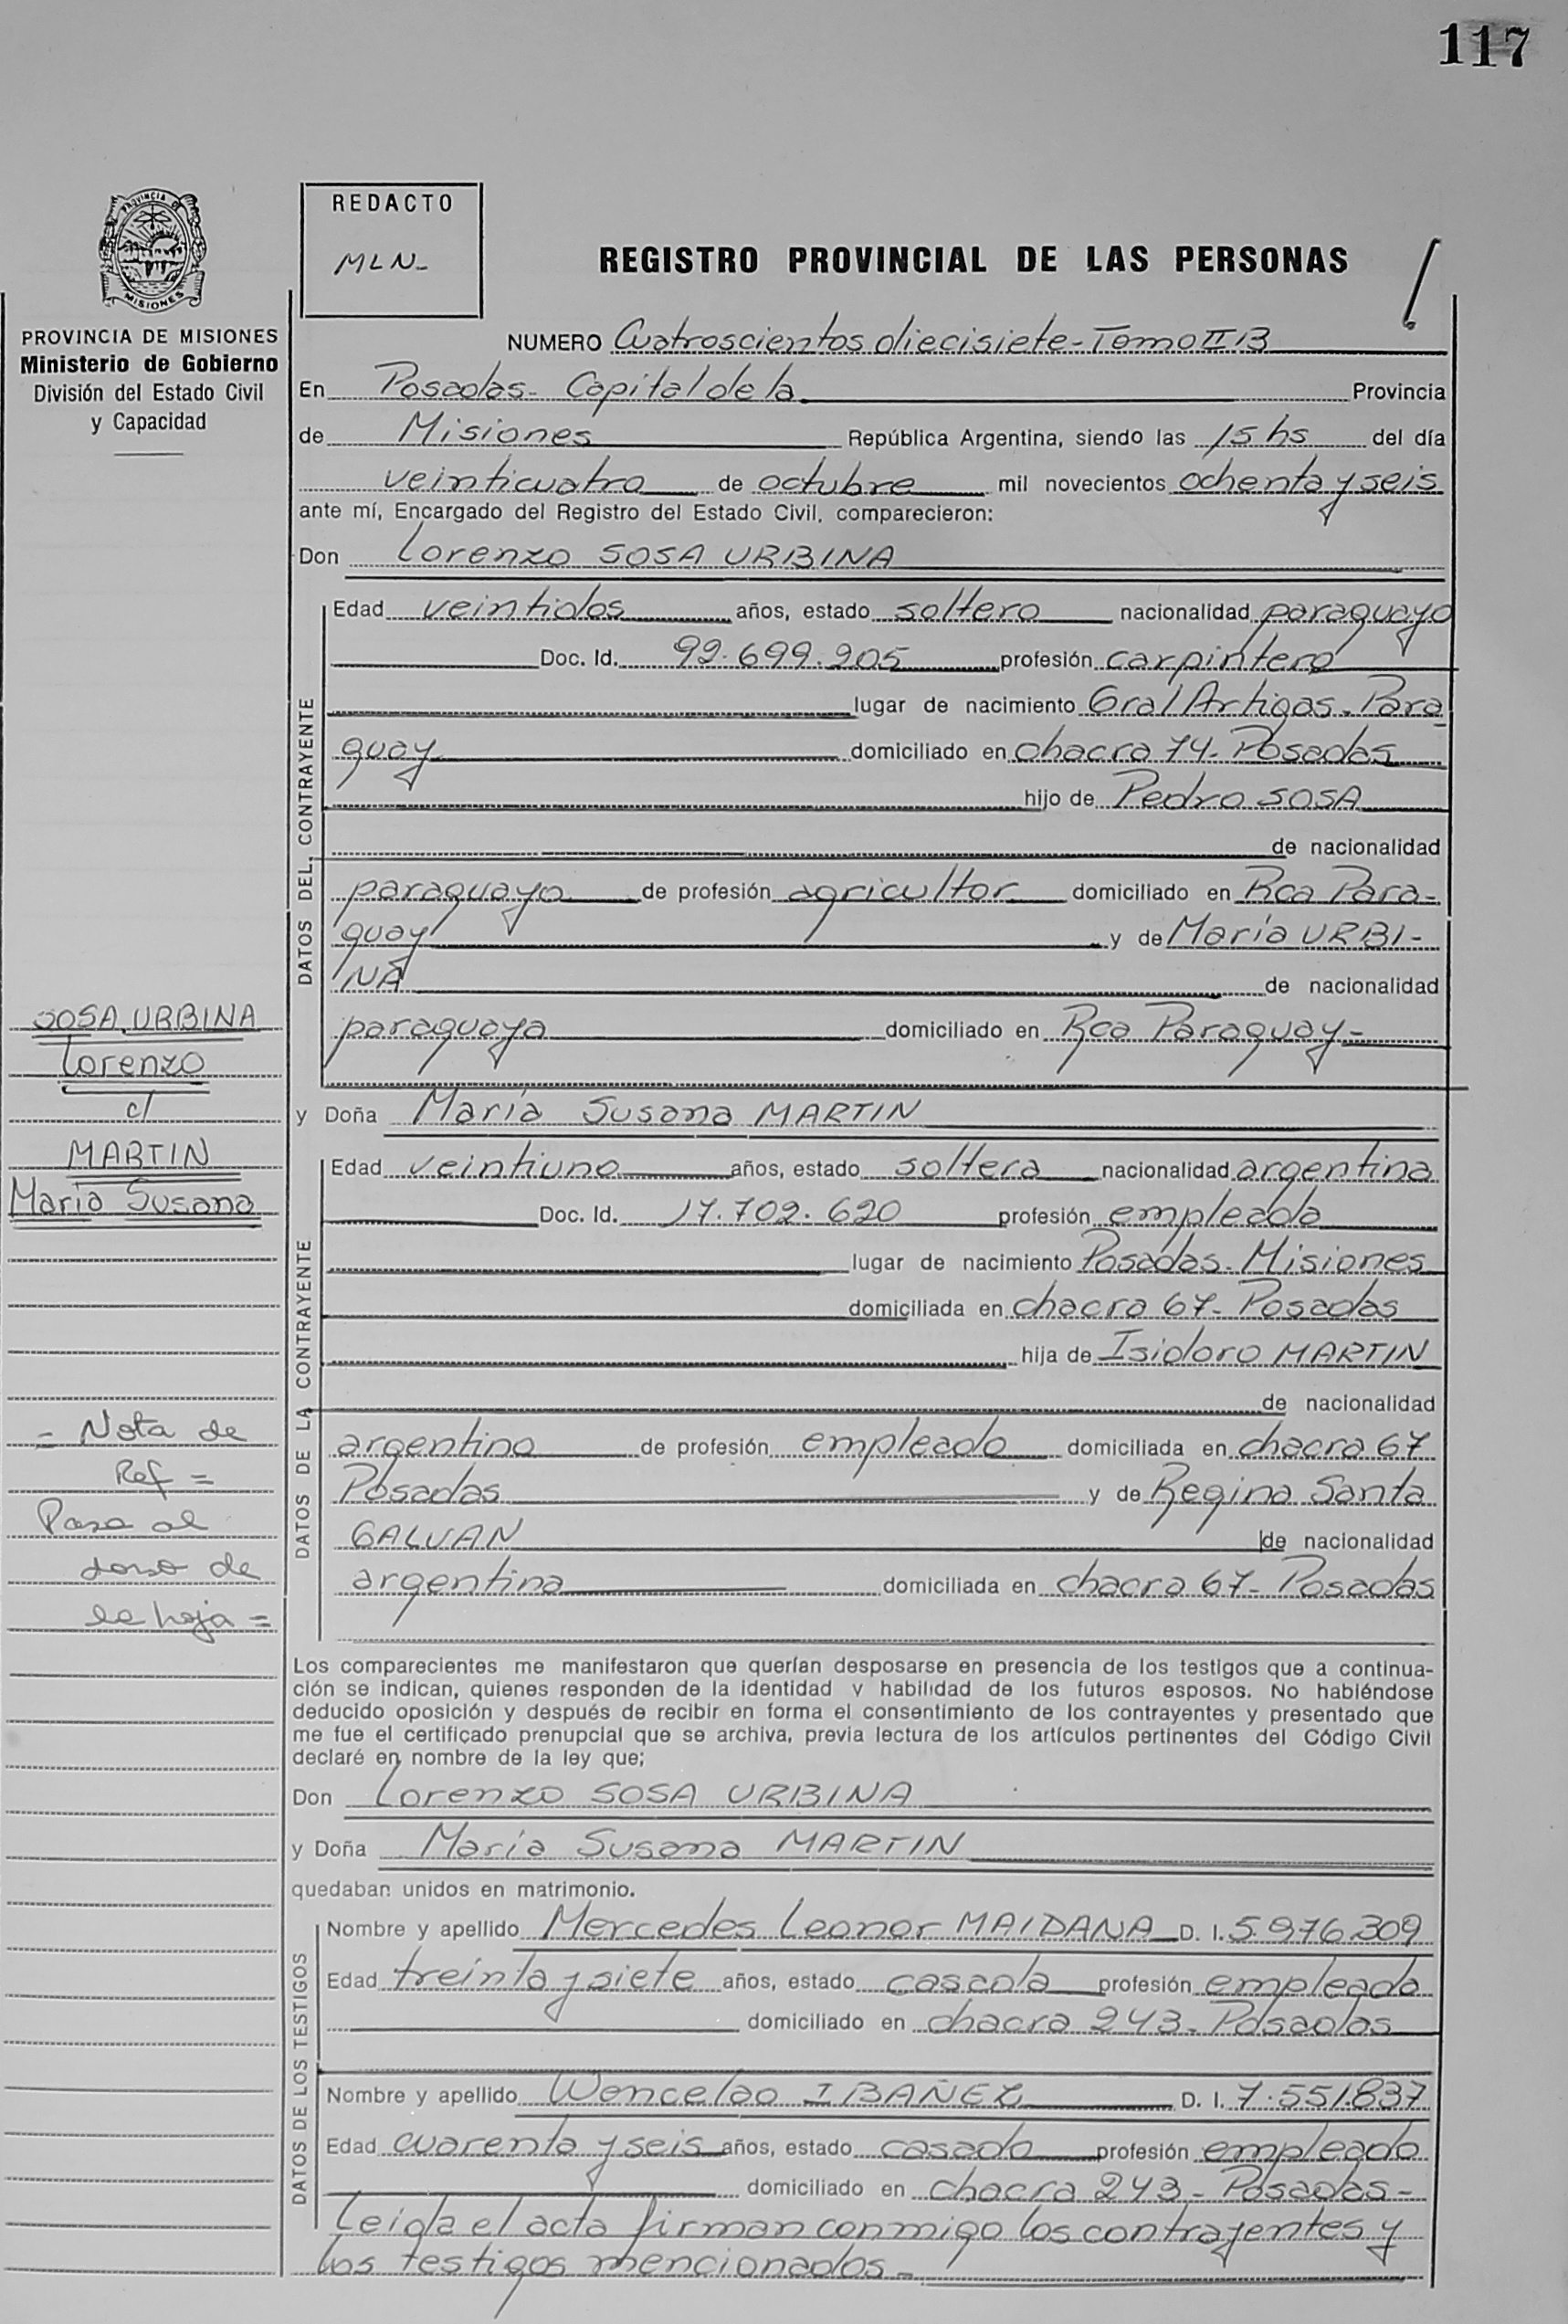 117
PROVINCIA DE
MISIONES
PROVINCIA DE MISIONES
Ministerio de Gobierno
División del Estado Civil
y Capacidad
REDACTO
MLN-
REGISTRO PROVINCIAL DE LAS PERSONAS
NUMERO Cuatroscientos diecisiete-Tomo II 13
En Posadas- Capital de la Provincia
de Misiones República Argentina, siendo las 15 hs del día
veinticuatro de octubre mil novecientos ochenta y seis
ante mí, Encargado del Registro del Estado Civil, comparecieron:
Don Lorenzo SOSA URBINA
DATOS DEL CONTRAYENTE
Edad veintidos años, estado soltero nacionalidad paraguayo
Doc. Id. 92.699.205 profesión carpintero
lugar de nacimiento Gral Artigas- Para
guay domiciliado en chacra 74- Posadas
hijo de Pedro SOSA
de nacionalidad
paraguayo de profesión agricultor domiciliado en Rca Para-
guay y de María URBI-
NA de nacionalidad
paraguaya domiciliado en Rca Paraguay-
SOSA URBINA
Lorenzo
c/
MARTIN
María Susana
y Doña María Susana MARTIN
DATOS DE LA CONTRAYENTE
Edad veintiuno años, estado soltera nacionalidad argentina
Doc. Id. 17.702.620 profesión empleada
lugar de nacimiento Posadas- Misiones
domiciliada en chacra 67- Posadas
hija de Isidoro MARTIN
de nacionalidad
argentino de profesión empleado domiciliada en chacra 67
Posadas y de Regina Santa
GALVAN de nacionalidad
argentina domiciliada en chacra 67- Posadas
= Nota de
Ref =
Pasa al
dorso de
la hoja =
Los comparecientes me manifestaron que querían desposarse en presencia de los testigos que a continua-
ción se indican, quienes responden de la identidad y habilidad de los futuros esposos. No habiéndose
deducido oposición y después de recibir en forma el consentimiento de los contrayentes y presentado que
me fue el certificado prenupcial que se archiva, previa lectura de los artículos pertinentes del Código Civil
declaré en nombre de la ley que;
Don Lorenzo SOSA URBINA
y Doña María Susana MARTIN
quedaban unidos en matrimonio.
DATOS DE LOS TESTIGOS
Nombre y apellido Mercedes Leonor MAIDANA D. I. 5.976.309
Edad treinta y siete años, estado casada profesión empleada
domiciliado en chacra 243- Posadas
Nombre y apellido Wencelao IBAÑEZ D. I. 7.551.837
Edad cuarenta y seis años, estado casado profesión empleado
domiciliado en chacra 243- Posadas-
Leida el acta firman conmigo los contrayentes y
los testigos mencionados-